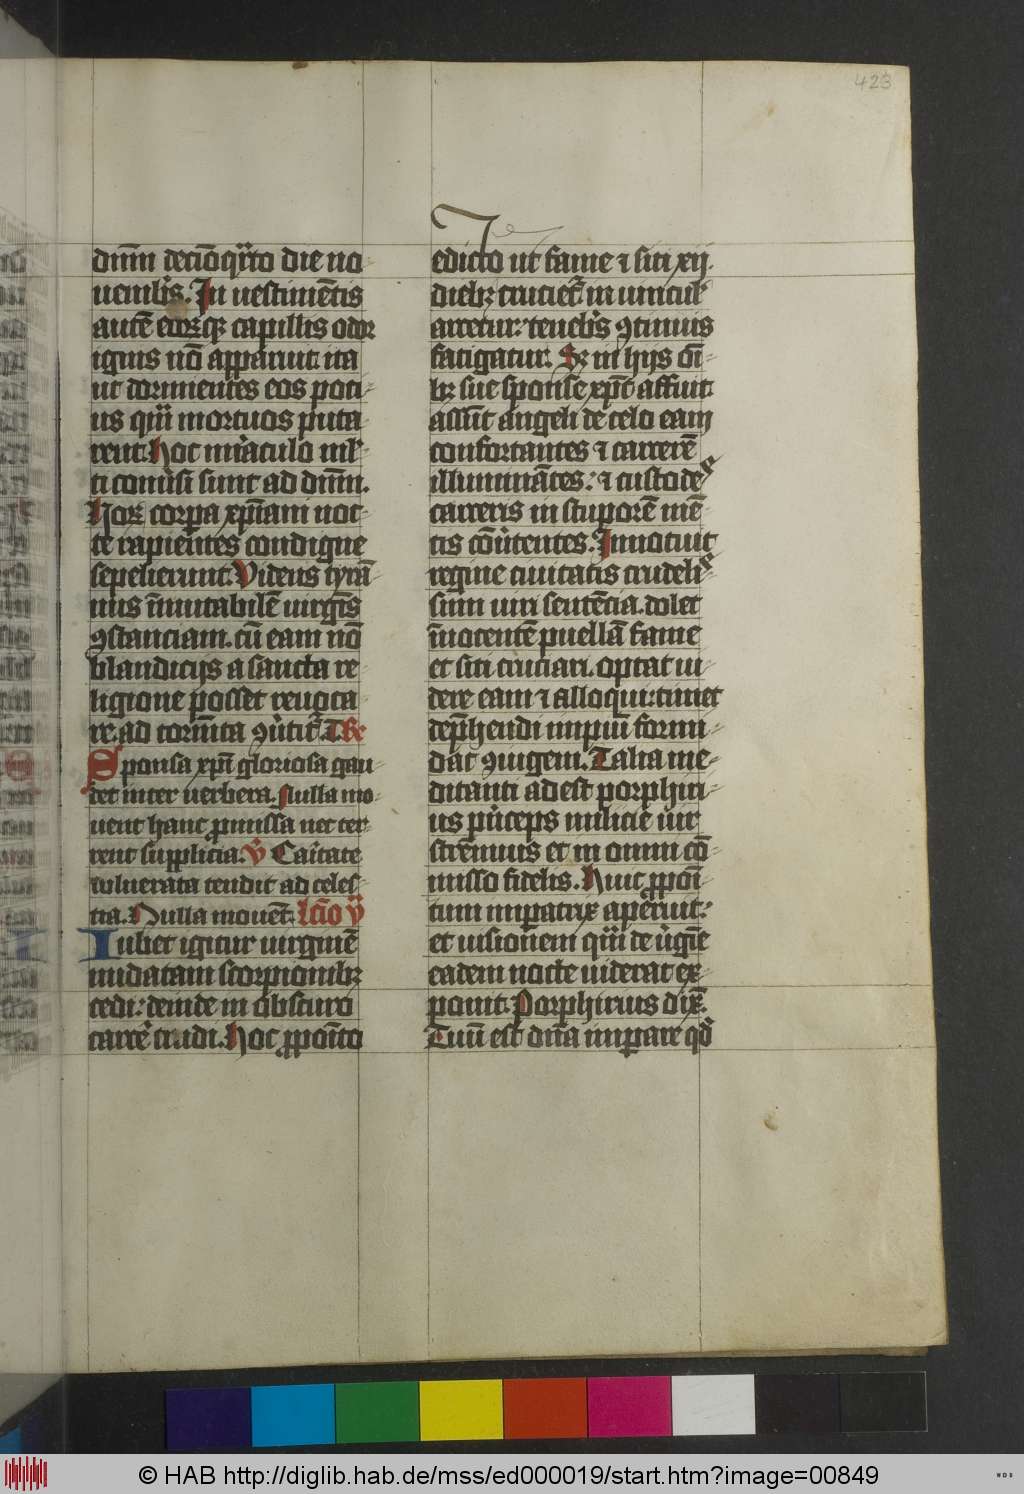 423
dn̄m deciōq̈to die no-
uembr̾s. In uestimētis
autē eorꝝq; capillis odor
ignis nō apparuit. ita
ut dormientes eos poti-
us q̈̄ mortuos puta-
rent. Hoc miraculo ml̾-
ti conuersi sunt ad dn̄m.
Horꝝ corpora xp̄iani noc-
te rapientes condigne
sepelierunt. Videns tyrā-
nus īmutabilē uirgīs
ꝯstanciam. cū eam nō
blandicijs a sancta re-
ligione posset reuoca-
re. ad tormēta ꝯuertit̾. R̄
Sponsa xp̄i gloriosa gau-
det inter uerbera. Nulla mo-
uent hanc ꝓmissa nec ter-
rent supplicia. V̄ Caritate
uulnerata tendit ad celes-
tia. Nulla mouēt. lc̄io v̄
Iubet igitur uirginē
nudatam scorpionibꝫ
cedi: deinde in obscuro
carcere trudi. Hoc ꝓpoīto
edicto ut fame ⁊ siti xij.
diebꝫ crucietur̾ in uincul̾
artetur: tenebris ꝯtinuis
fatigatur. Sꝫ in hijs oī-
bꝫ sue sponse xp̄c affuit.
assūt angeli de celo eam
confortantes ⁊ carcerē
illuminātes: ⁊ custodes
carceris in stuporē mē-
tis cōuertentes. Innotuit
regine ciuitatis crudelis-
simi uiri sentēcia. dolet
īnocentē puellā fame
et siti cruciari. optat ui-
dere eam ⁊ alloqui: timet
dep̄hendi impiū formi-
dat ꝯiugem. Talia me-
ditanti adest porphiri-
us princeps milicie uir
strēnuus et in omni cō-
misso fidelis. Huic ꝓpoī-
tum imperatrix aperuit:
et uisionem q̈̄ de uirgīe
eadem nocte uiderat ex-
ponit. Porphirius dix̄.
Tuū est dn̄a imperare qd̾
© HAB http://diglib.hab.de/mss/ed000019/start.htm?image=00849